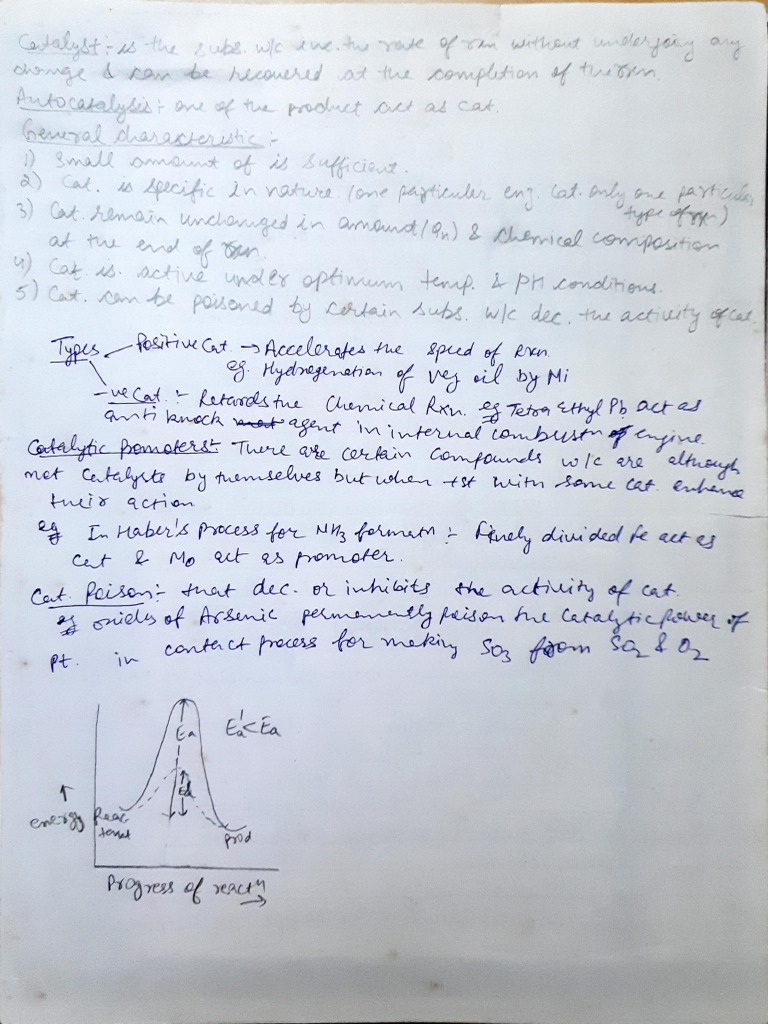 Catalyst :- is the subs. w/c inc. the rate of rxn without undergoing any
change & can be recovered at the completion of the rxn.
Autocatalysis :- one of the product act as cat.
General characteristic :-
1) Small amount of is sufficient.
2) Cat. is specific in nature (one particular enz. cat. only one particular
type of rxn)
3) Cat. remain unchanged in amount (qn) & chemical composition
at the end of rxn.
4) Cat. is. active under optimum temp. & PH conditions.
5) Cat. can be poisoned by certain subs. w/c dec. the activity of cat.
Types Positive Cat. → Accelerates the speed of rxn.
eg. Hydrogenation of veg oil by Ni
-ve Cat. :- Retards the Chemical Rxn. eg Tetra Ethyl Pb act as
anti knock agent in internal combustn of engine.
Catalytic Promoters :- There are certain compounds w/c are although
not Catalysts by themselves but when tst with some cat. enhance
their action
eg In Haber's Process for NH3 formatn :- Finely divided Fe act as
cat & Mo act as promoter.
Cat. Poison :- that dec. or inhibits the activity of cat.
eg oxides of Arsenic permanently poison the Catalytic power of
Pt. in contact process for making SO3 from SO2 & O2
Ea E'a < Ea
Ea
↑
energy
Reac
tant
Prod.
Progress of reactn →